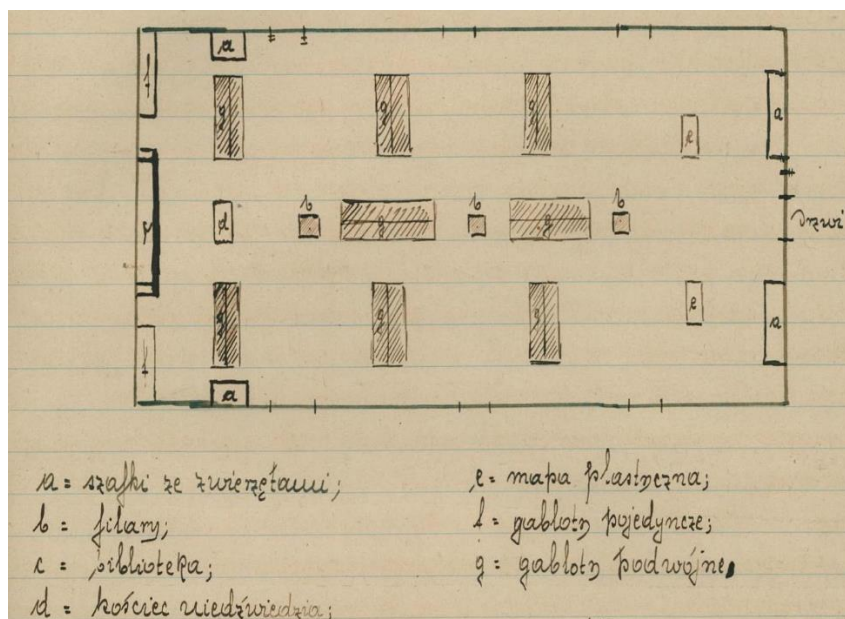 a
f
g g g
e a
b b b
d g g Drzwi
g g g
e a
f
a
a = szafki ze zwierzętami;
b = filary;
c = biblioteka;
d = kościec niedźwiedzia;
e = mapa plastyczna;
f = gabloty pojedyncze;
g = gabloty podwójne.